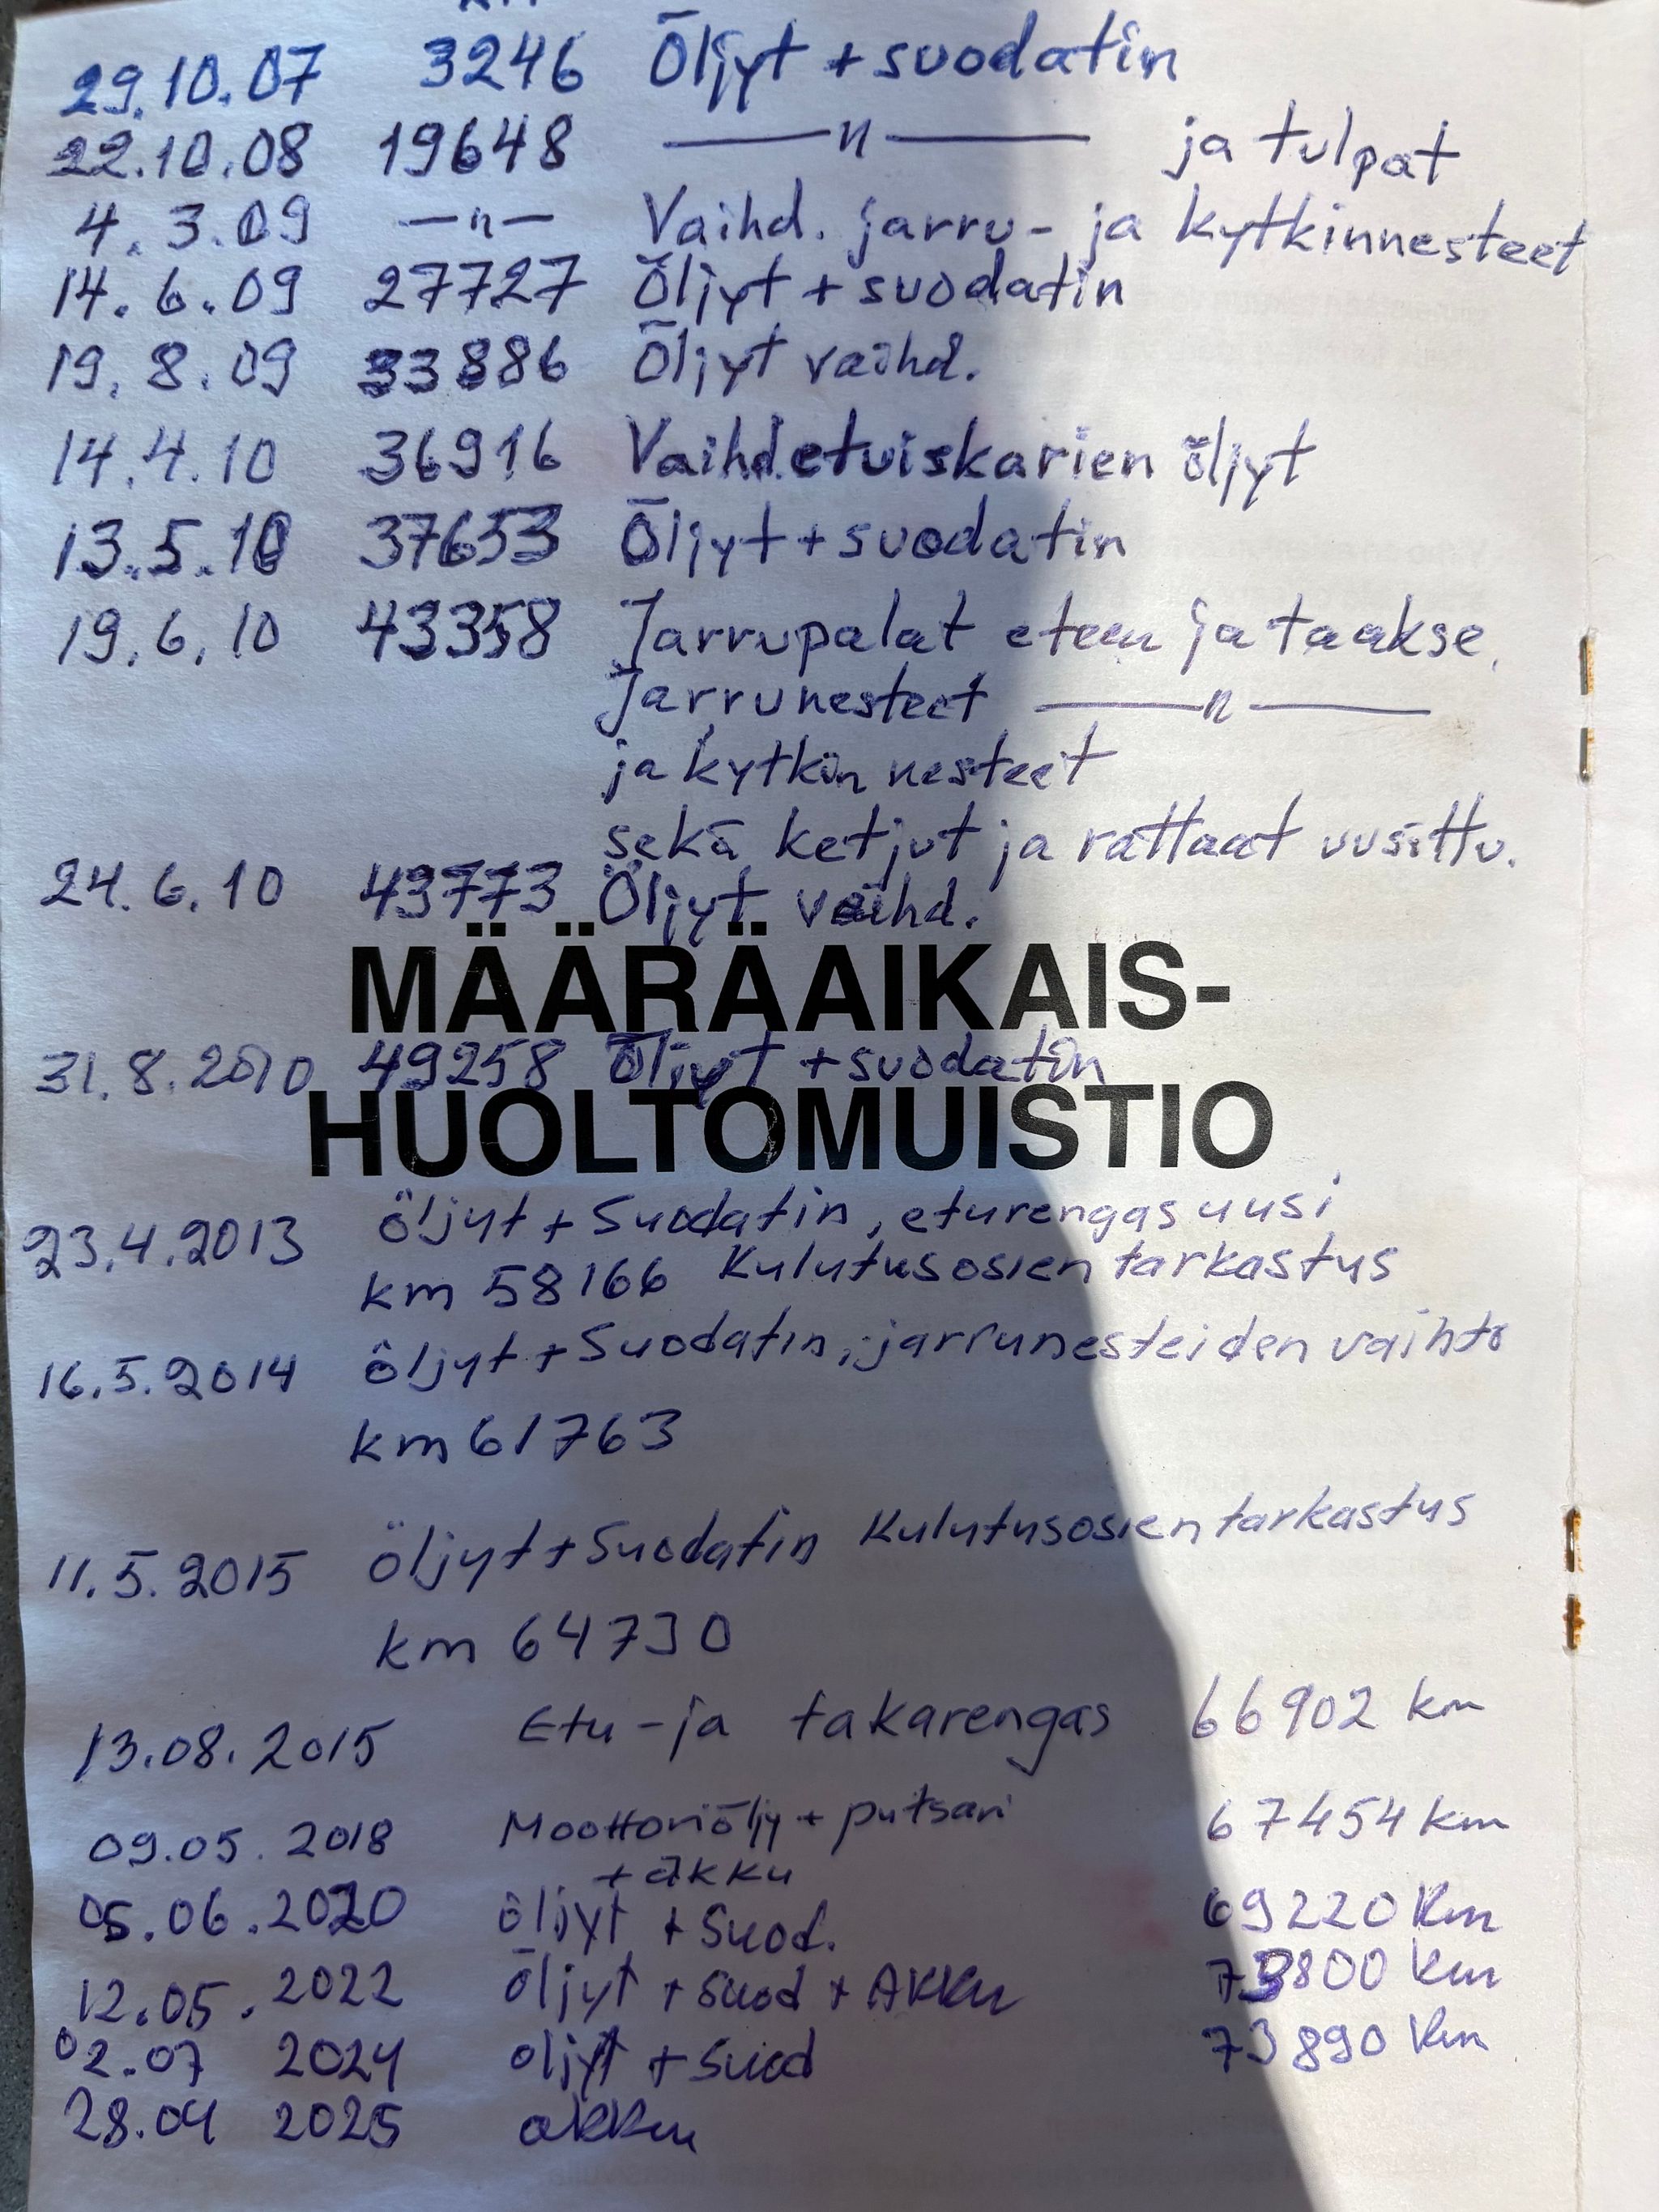 29.10.07 3246 Öljyt + suodatin
22.10.08 19648 —— " —— ja tulpat
4.3.09 — " — Vaihd. jarru- ja kytkinnesteet
14.6.09 27727 Öljyt + suodatin
19.8.09 33886 Öljyt vaihd.
14.4.10 36916 Vaihd. etuiskarien öljyt
13.5.10 37653 Öljyt + suodatin
19.6.10 43358 Jarrupalat eteen ja taakse.
Jarrunesteet —— " ——
ja kytkin nesteet
sekä ketjut ja rattaat uusittu.
24.6.10 43773 Öljyt vaihd.
MÄÄRÄAIKAIS-
31.8.2010 49258 Öljyt + suodatin
HUOLTOMUISTIO
23.4.2013 öljyt + Suodatin, eturengas uusi
km 58166 Kulutusosien tarkastus
16.5.2014 öljyt + Suodatin, jarrunesteiden vaihto
km 61763
11.5.2015 öljyt + Suodatin Kulutusosien tarkastus
km 64730
13.08.2015 Etu-ja takarengas 66902 km
09.05.2018 Moottoriöljy + putsari 67454 km
+ akku
05.06.2020 öljyt + Suod. 69220 Km
12.05.2022 öljyt + Suod + AKKu 73800 Km
02.07 2024 oljyt + Suod 73890 Km
28.04 2025 akku